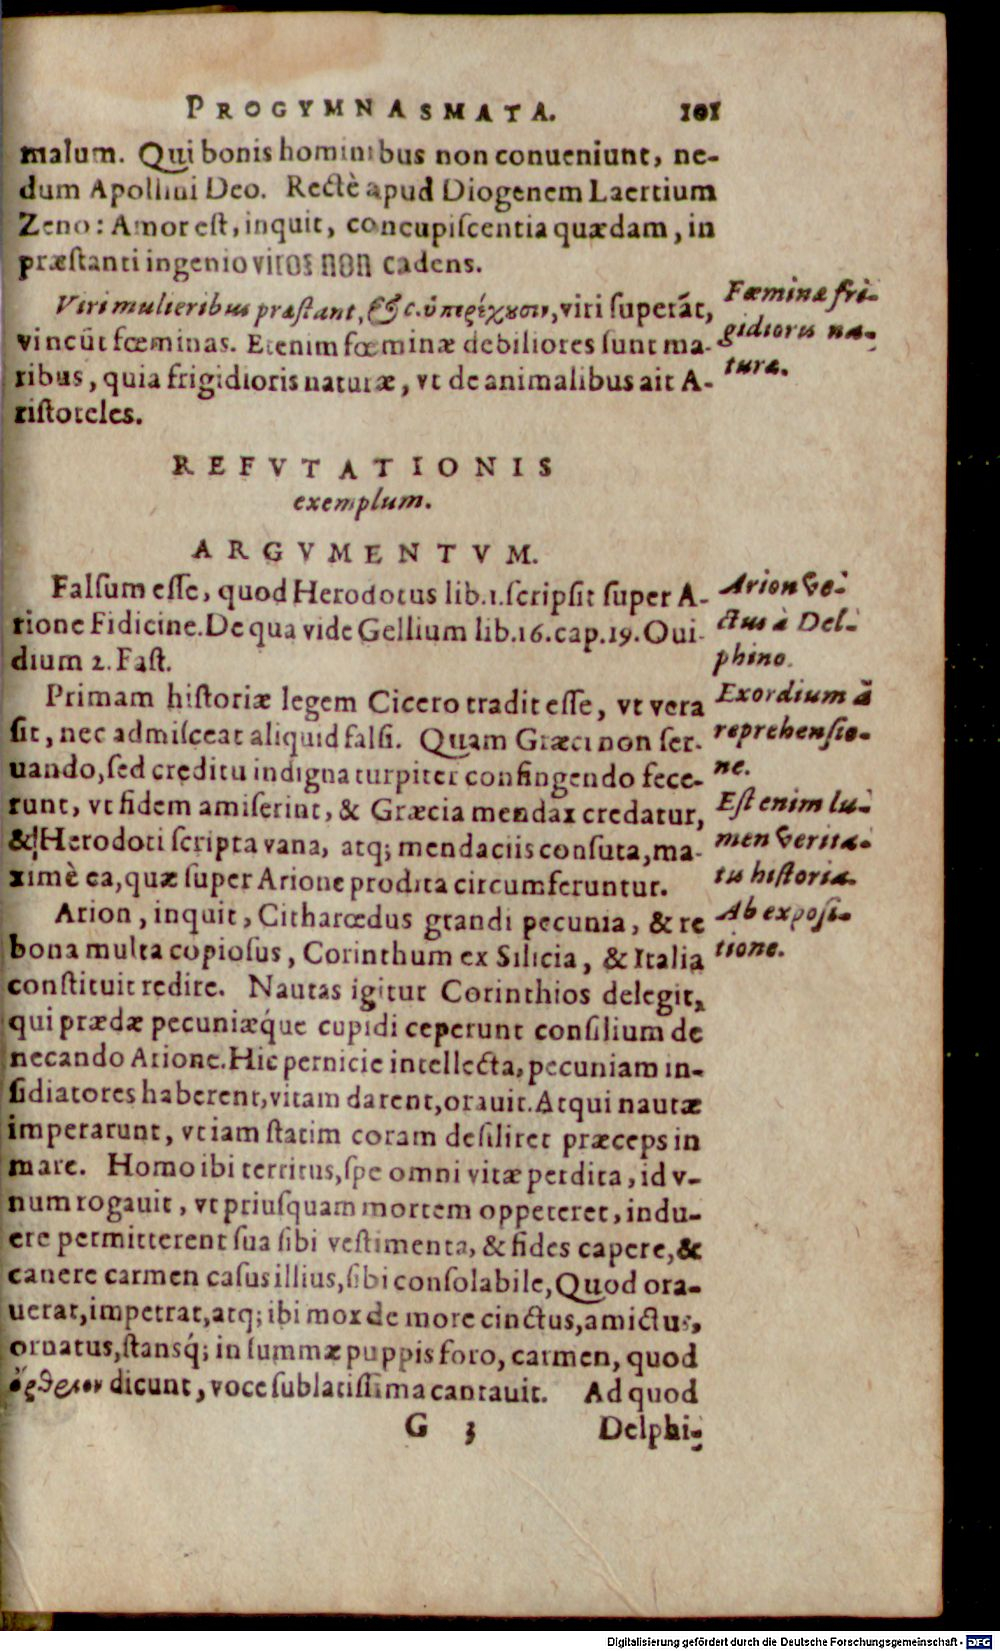 PROGYMNASMATA. 101
malum. Qui bonis hominibus non conueniunt, ne-
dum Apollini Deo. Rectè apud Diogenem Laertium
Zeno: Amor est, inquit, concupiscentia quædam, in
præstanti ingenio viros non cadens.
Viri mulieribus præstant, &c. ὑπερέχουσιν, viri superāt,
vincūt fœminas. Etenim fœminæ debiliores sunt ma-
ribus, quia frigidioris naturæ, vt de animalibus ait A-
ristoteles.
Fœminæ fri-
gidioris na-
turæ.
REFVTATIONIS
exemplum.
ARGVMENTVM.
Falsum esse, quod Herodotus lib.1. scripsit super A-
rione Fidicine. De qua vide Gellium lib.16. cap.19. Oui-
dium 2. Fast.
Arion ve-
ctus à Del-
phino.
Primam historiæ legem Cicero tradit esse, vt vera
sit, nec admisceat aliquid falsi. Quam Græci non ser-
uando, sed creditu indigna turpiter confingendo fece-
runt, vt fidem amiserint, & Græcia mendax credatur,
& Herodoti scripta vana, atq; mendaciis consuta, ma-
ximè ea, quæ super Arione prodita circumferuntur.
Exordium à
reprehensio-
ne.
Est enim lu-
men verita-
tis historia.
Arion, inquit, Citharœdus grandi pecunia, & re
bona multa copiosus, Corinthum ex Silicia, & Italia
constituit redire. Nautas igitur Corinthios delegit,
qui prædæ pecuniæque cupidi ceperunt consilium de
necando Arione. Hic pernicie intellecta, pecuniam in-
sidiatores haberent, vitam darent, orauit. Atqui nautæ
imperarunt, vt iam statim coram desiliret præceps in
mare. Homo ibi territus, spe omni vitæ perdita, id v-
num rogauit, vt priusquam mortem oppeteret, indu-
ere permitterent sua sibi vestimenta, & fides capere, &
canere carmen casus illius, sibi consolabile, Quod ora-
uerat, impetrat, atq; ibi mox de more cinctus, amictus,
ornatus, stansq́; in summæ puppis foro, carmen, quod
ὄρθειον dicunt, voce sublatissima cantauit. Ad quod
Ab exposi-
tione.
G 3 Delphi-
Digitalisierung gefördert durch die Deutsche Forschungsgemeinschaft - DFG